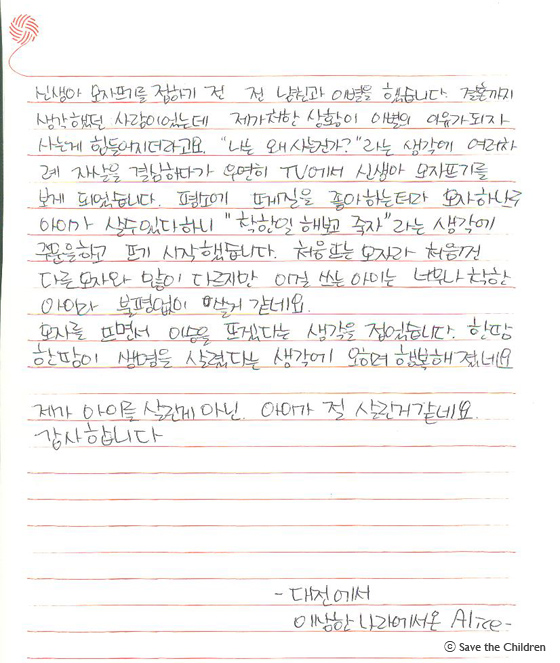 신생아 모자뜨기를 접하기 전 전 남친과 이별을 했습니다. 결혼까지
생각했던 사람이었는데 제가처한 상황이 이별의 이유가되자
사는게 힘들어지더라고요. "나는 왜 사는건가?"라는 생각에 여러차
례 자살을 결심하다가 우연히 TV에서 신생아 모자뜨기를
보게 되었습니다. 평소에 뜨게질을 좋아하는터라 모자하나로
아이가 살수있다하니 "착한일 해보고 죽자"라는 생각에
주문을하고 뜨기 시작했습니다. 처음뜨는 모자라 처음건
다른모자와 많이 다르지만 이걸 쓰는 아이는 너무나 착한
아이라 불평없이 쓸거 같네요.
모자를 뜨면서 이승을 뜨겠다는 생각을 접었습니다. 한땀
한땀이 생명을 살렸다는 생각에 오히려 행복해 졌네요
제가 아이를 살린게 아닌. 아이가 절 살린거같네요.
감사합니다
- 대전에서
이상한 나라에서온 Alice-
ⓒ Save the Children